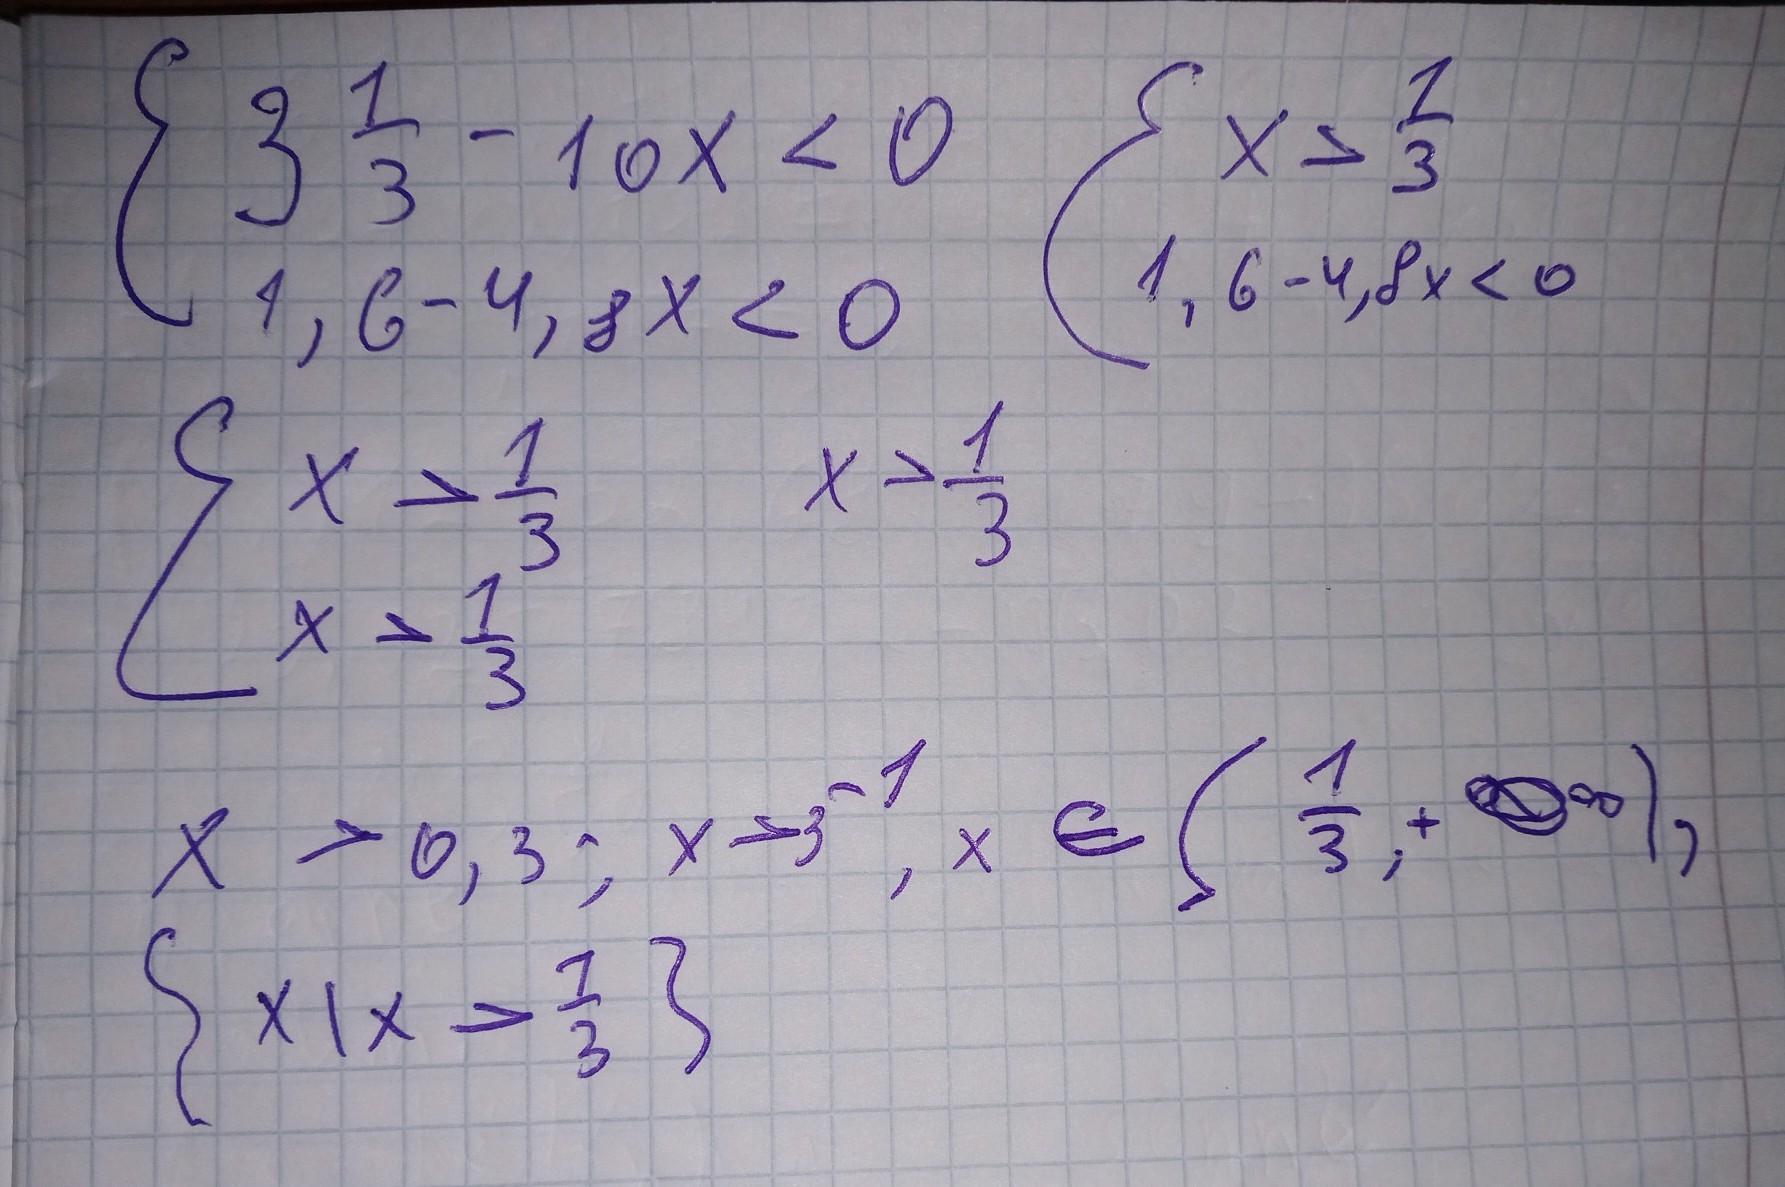 { 3 1/3 - 10x < 0
1,6 - 4,8x < 0
{ x > 1/3
1,6 - 4,8x < 0
{ x > 1/3
x > 1/3
x > 1/3
x > 0,3; x > 3⁻¹, x ∈ (1/3; + ∞),
{x | x > 1/3}